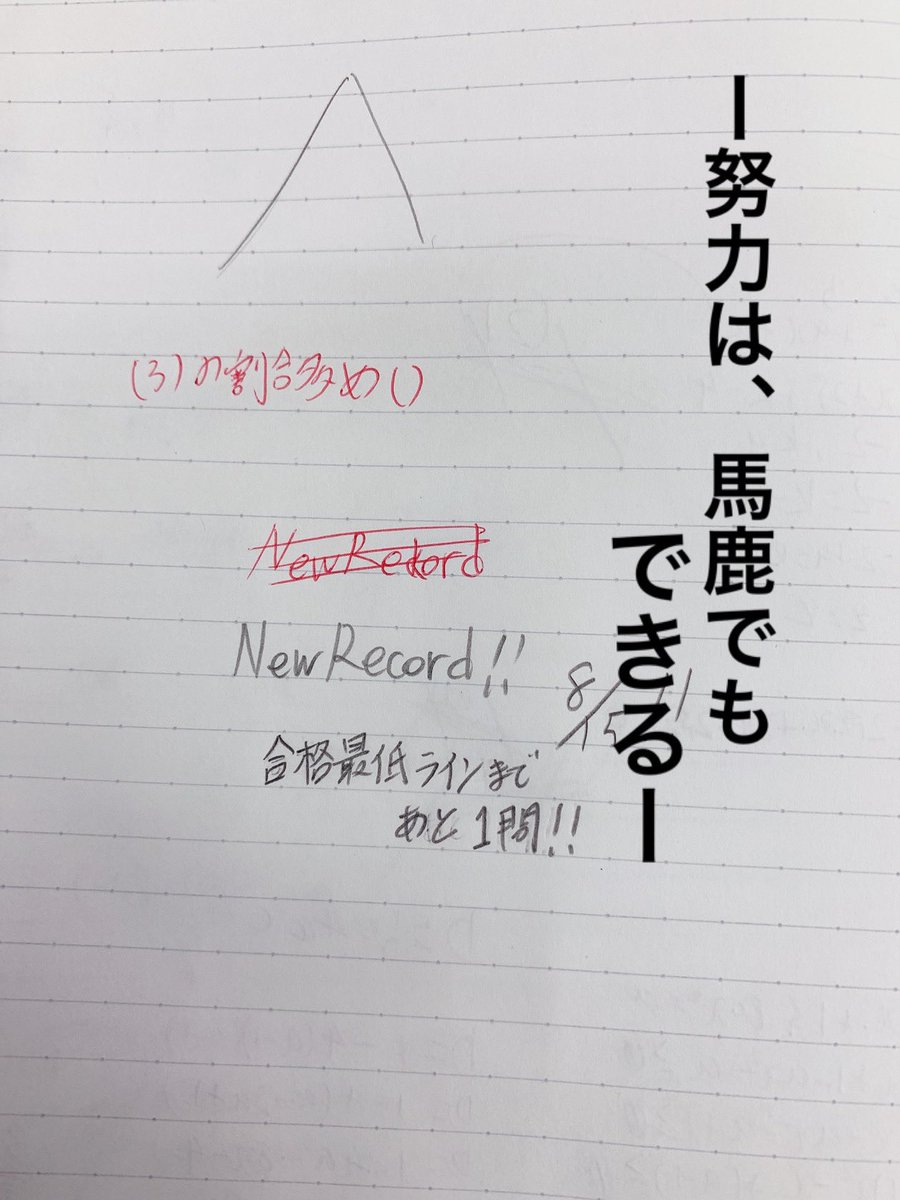 ー努力は、馬鹿でも
できるー
(3)の割合多めい
NewRecord
NewRecord!!
8/15
合格最低ラインまで
あと1問!!